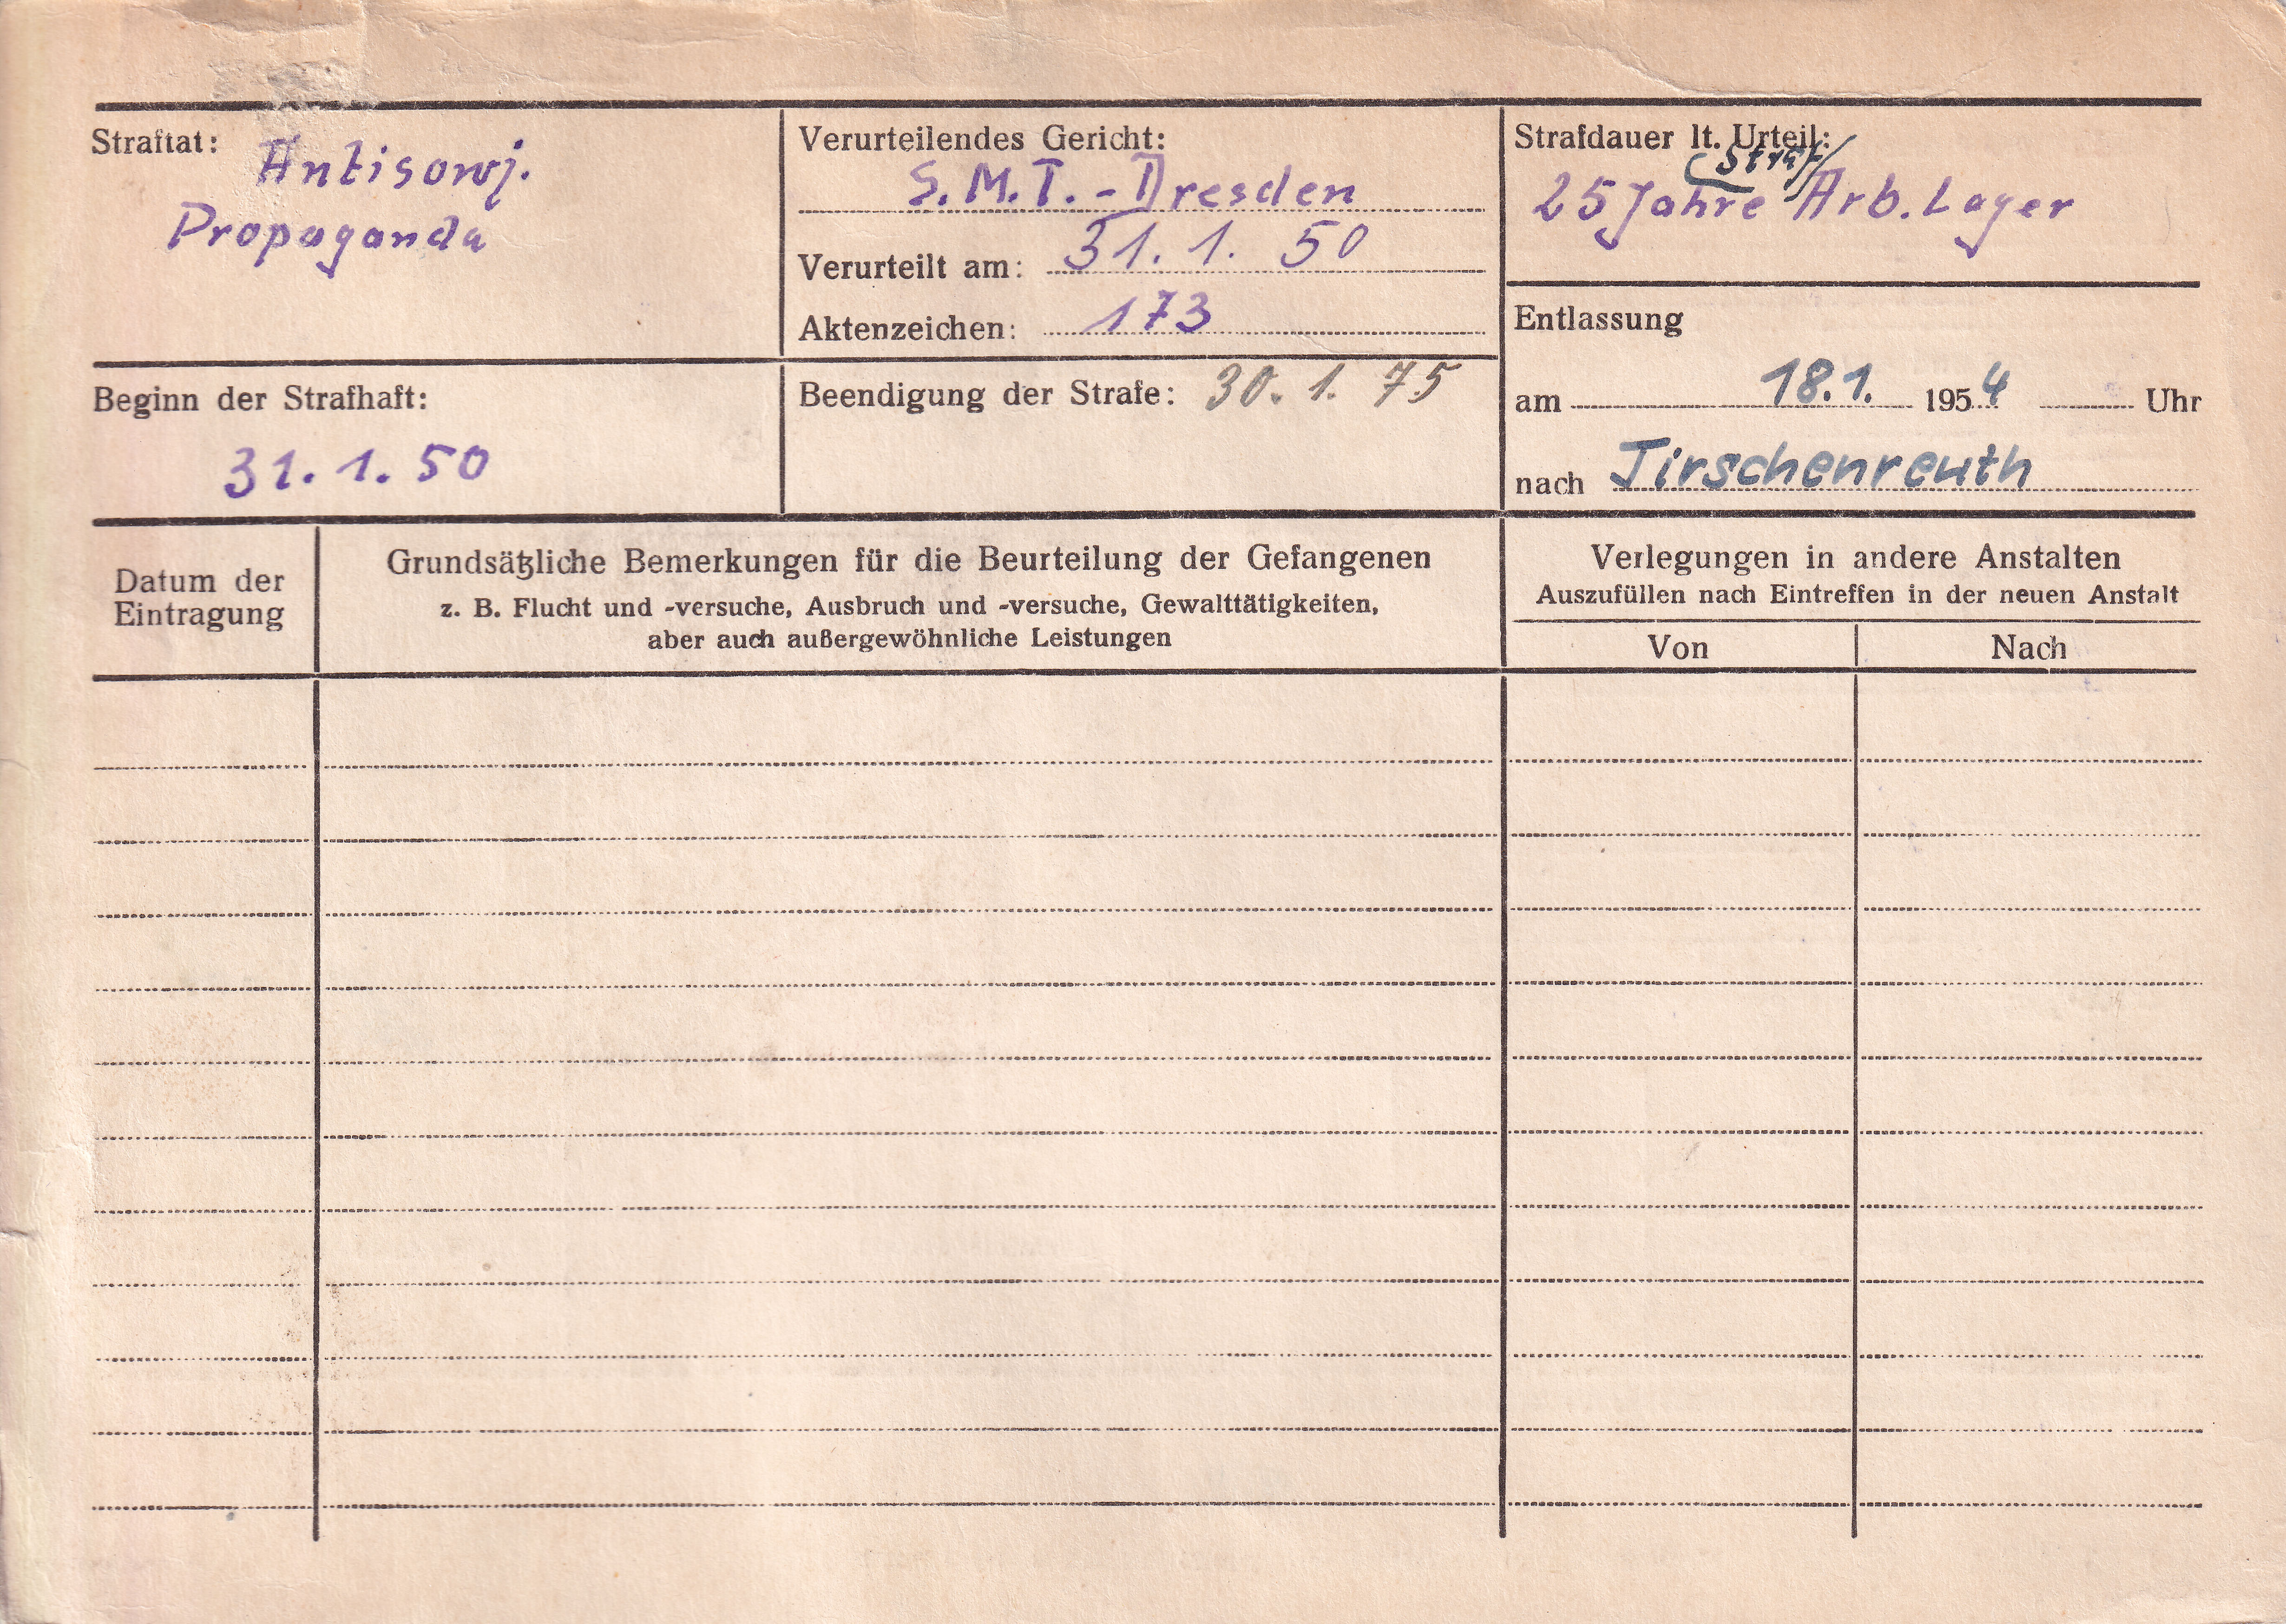 Straftat: Antisowj.
Propaganda
Verurteilendes Gericht:
S.M.T. - Dresden
Verurteilt am: 31. 1. 50
Aktenzeichen: 173
Strafdauer lt. Urteil:
Straf
25 Jahre Arb. Lager
Beginn der Strafhaft:
31. 1. 50
Beendigung der Strafe: 30. 1. 75
Entlassung
am 18.1. 1954 Uhr
nach Tirschenreuth
Datum der
Eintragung
Grundsätzliche Bemerkungen für die Beurteilung der Gefangenen
z. B. Flucht und -versuche, Ausbruch und -versuche, Gewalttätigkeiten,
aber auch außergewöhnliche Leistungen
Verlegungen in andere Anstalten
Auszufüllen nach Eintreffen in der neuen Anstalt
Von Nach